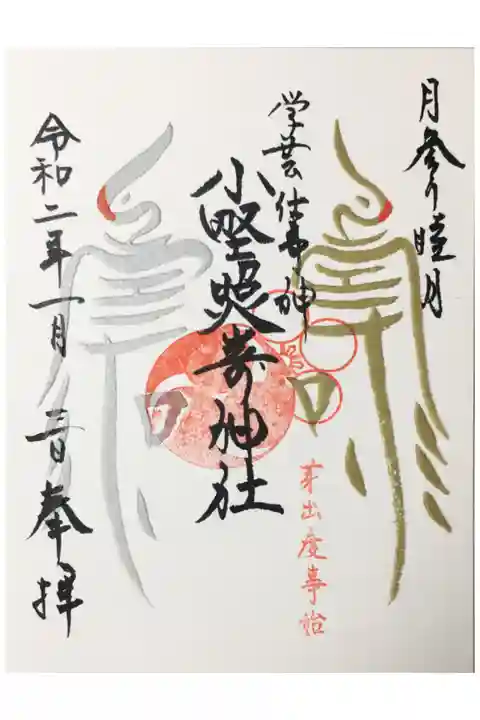 月参り睦月
学芸仕事神
小野照崎神社
芽出度事始
令和二年一月二日奉拝